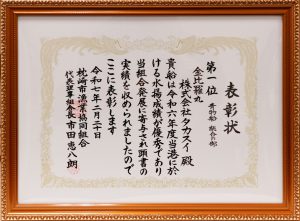 表彰状
第一位 青物部 総合の部
金比羅丸
株式会社タカスイ 殿
貴船は令和六年度当港に於
ける水揚成績が優秀であり
当組合発展に寄与され頭書の
実績を収められましたので
ここに表彰します
令和七年二月二十日
枕崎市漁業協同組合
代表理事組合長 市田恵八朗